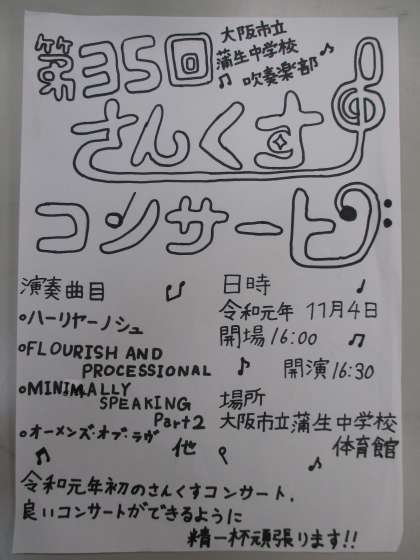 第35回
大阪市立
蒲生中学校
吹奏楽部
さんくす
コンサート
演奏曲目
○ハーリヤーノシュ
○FLOURISH AND
PROCESSIONAL
○MINIMALLY
SPEAKING
Part2
○オーメンズ・オブ・ラヴ
他
日時
令和元年 11月4日
開場16:00
開演16:30
場所
大阪市立蒲生中学校
体育館
令和元年初のさんくすコンサート、
良いコンサートができるように
精一杯頑張ります!!